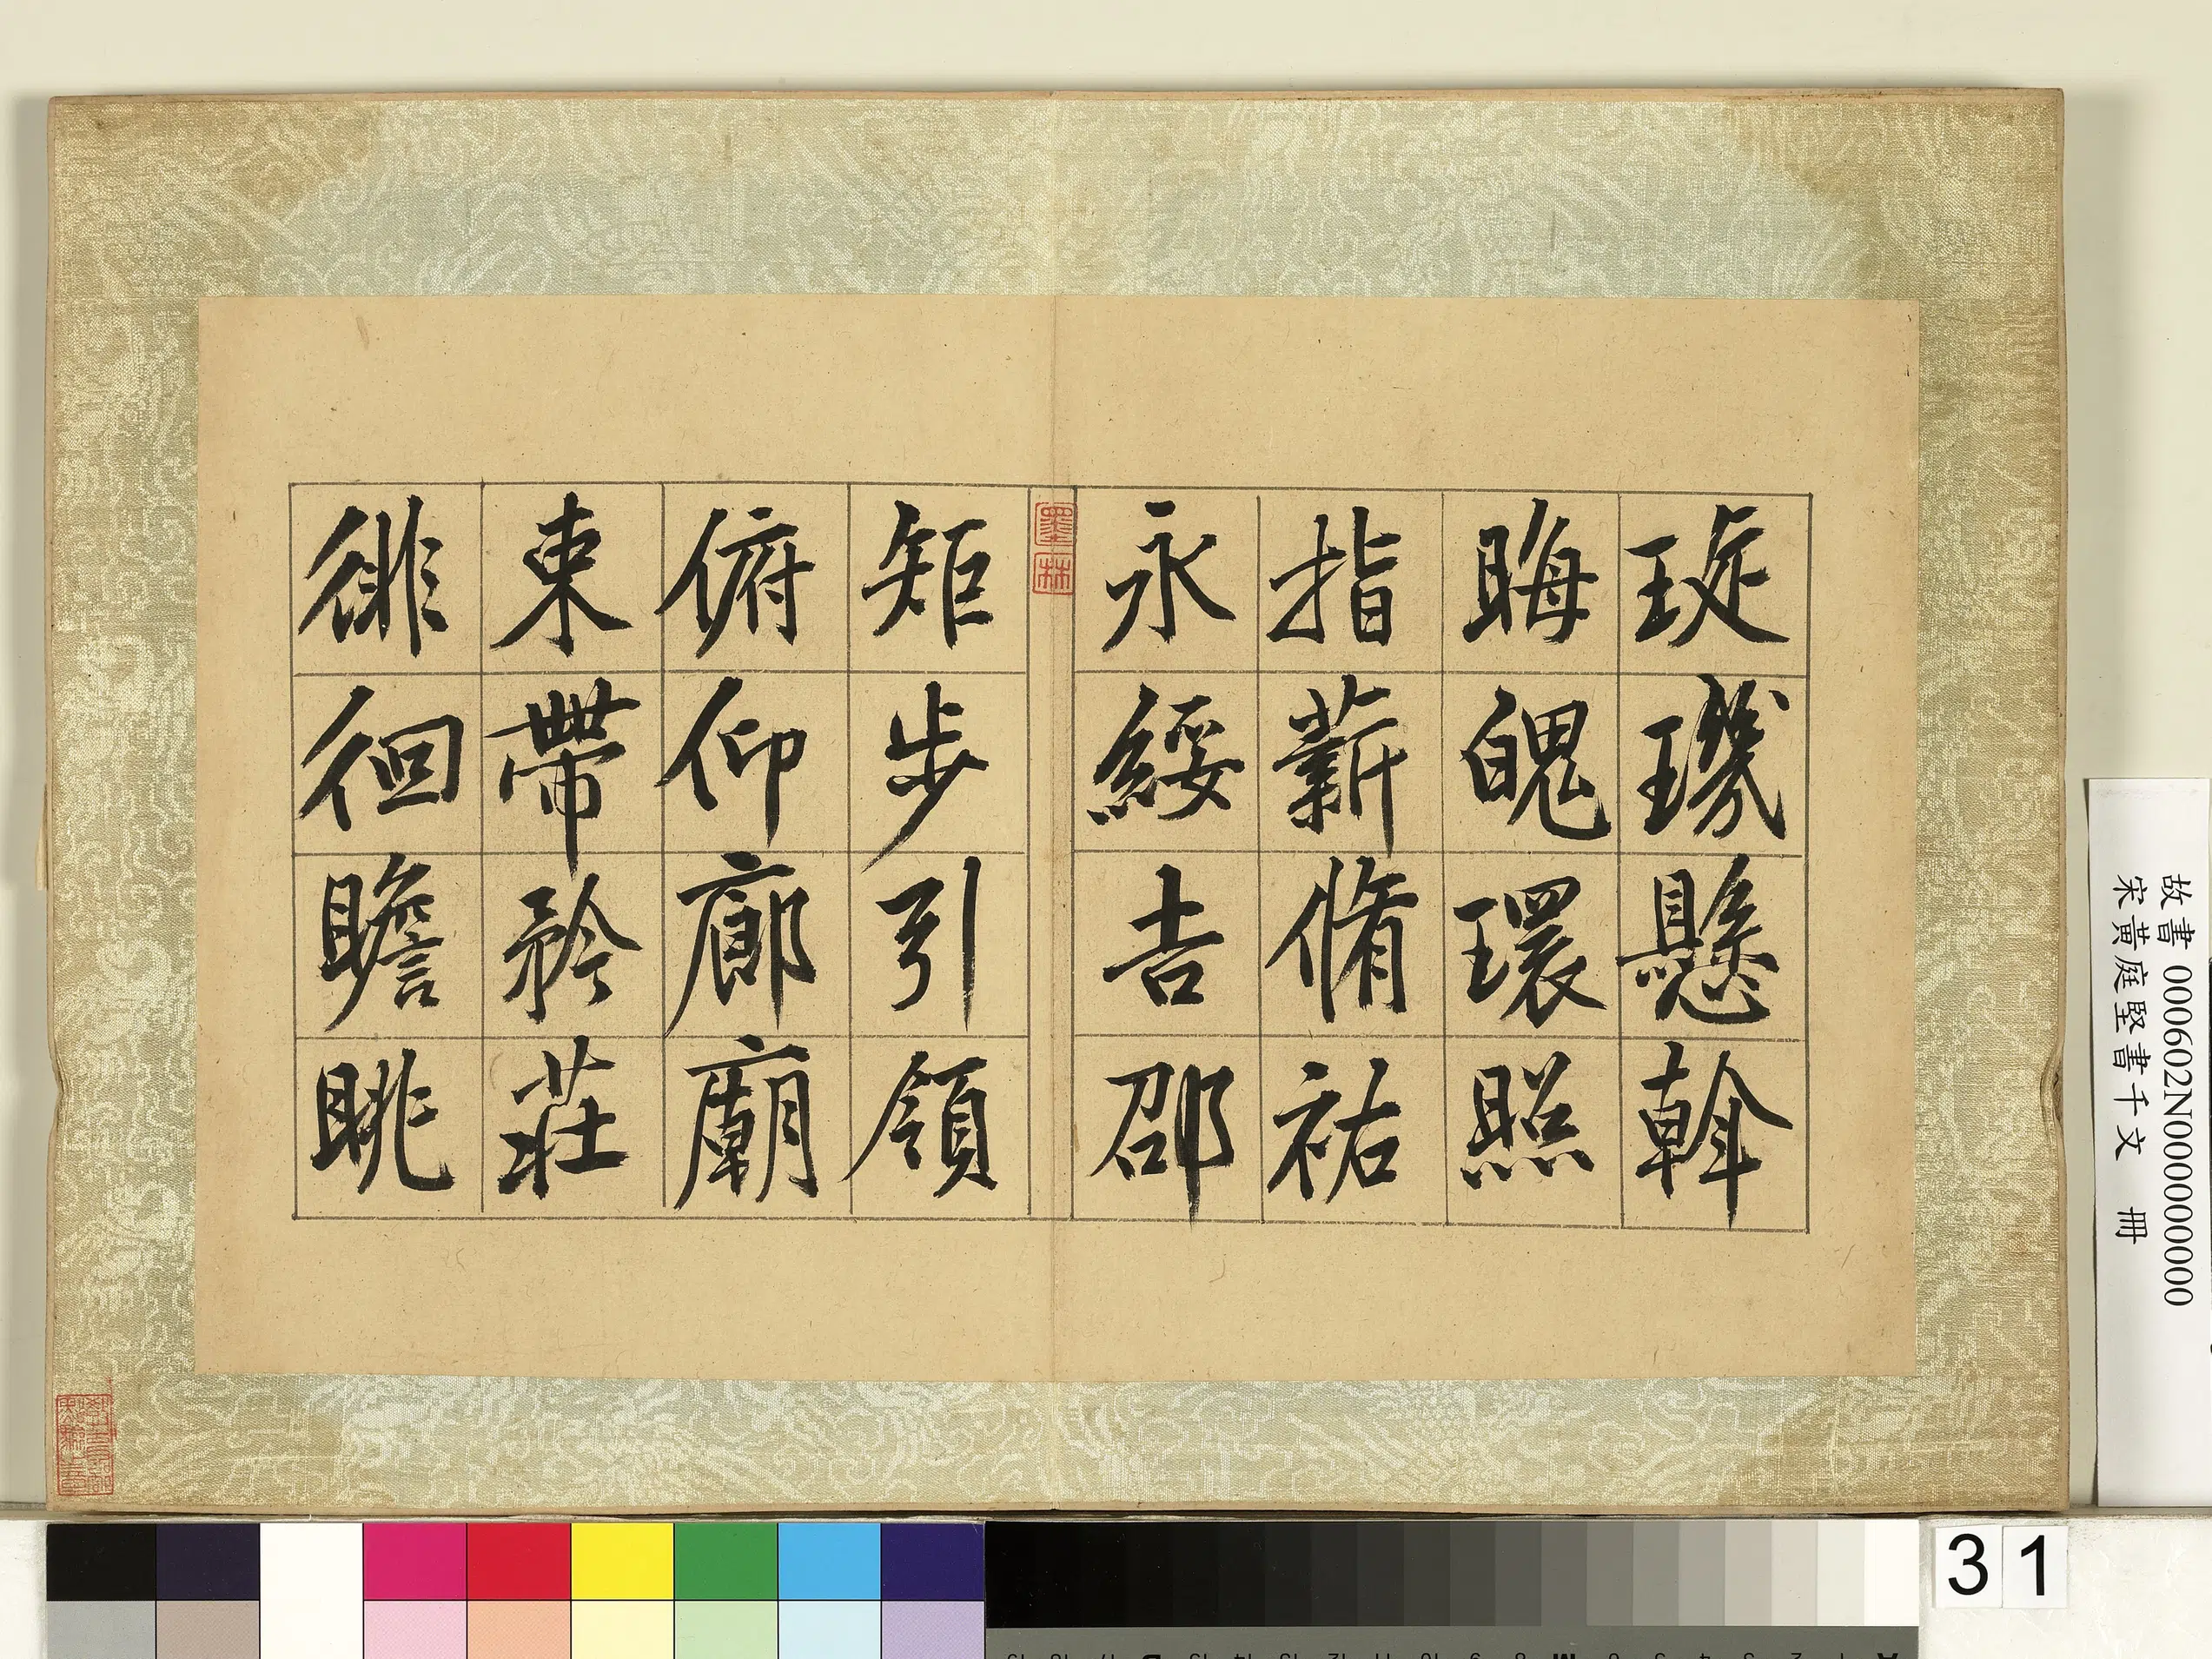 琁璣懸斡
晦魄環照
指薪脩祐
永綏吉邵
墨林
矩步引領
俯仰廊廟
束帶矜莊
徘徊瞻眺
故書 000602N000000000
宋黃庭堅書千文 冊
31